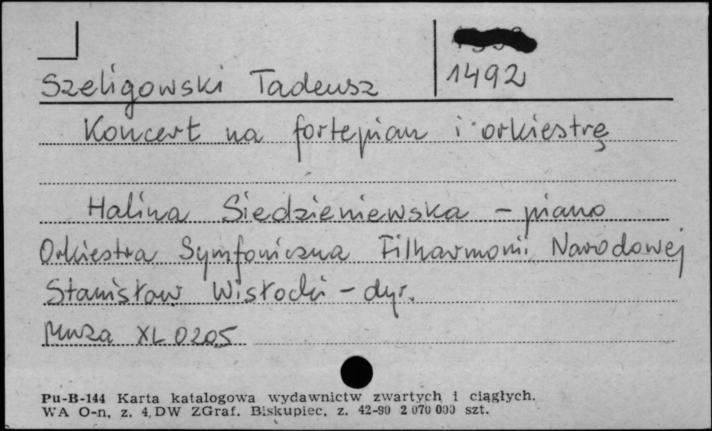 1492
Szeligowski Tadeusz
Koncert na fortepian i orkiestrę
Halina Siedzieniewska - piano
Orkiestra Symfoniczna Filharmonii Narodowej
Stanisław Wisłocki - dyr.
Muza XL 0205
Pu-B-144 Karta katalogowa wydawnictw zwartych i ciągłych.
WA O-n, z. 4, DW ZGraf. Biskupiec, z. 42-80 2 070 000 szt.